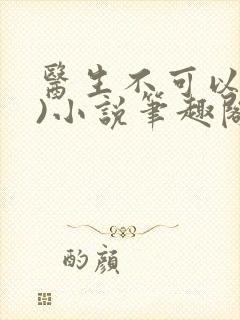 醫生不可以
)小說筆趣閣
酌顏